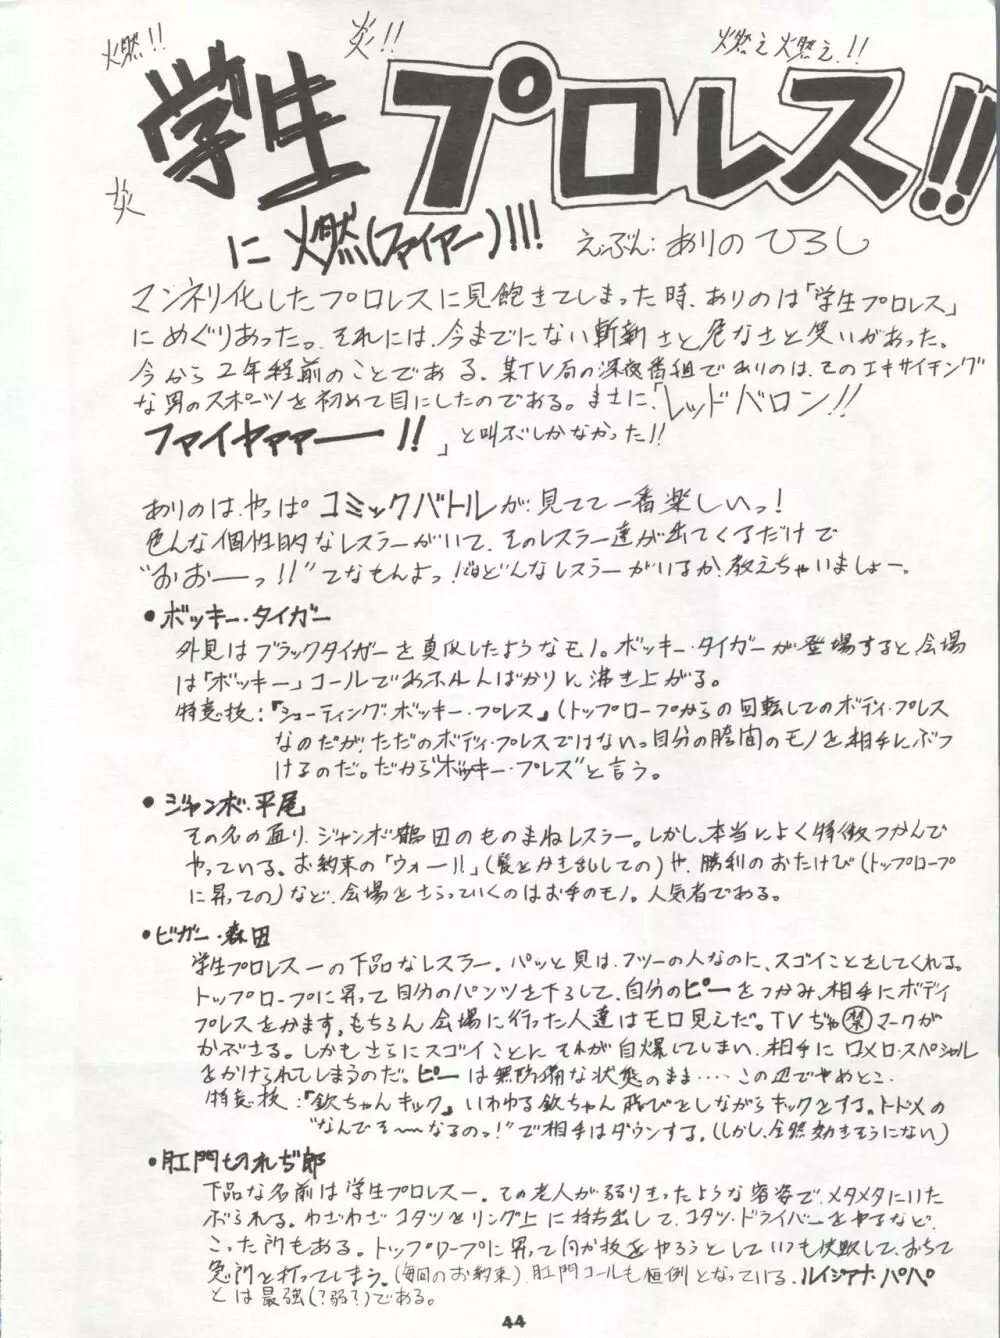 燃!!
炎!!
燃え燃え!!
炎
学生プロレス!!
に 燃(ファイアー)!!!
えぶん:ありの ひろし
マンネリ化したプロレスに見飽きてしまった時、ありのは「学生プロレス」
にめぐりあった。それには、今までにない斬新さと危なさと笑いがあった。
今から2年程前のことである、某TV局の深夜番組でありのは、そのエキサイチング
な男のスポーツを初めて目にしたのである。まさに、「レッドバロン!!
ファイヤァァーー!!」と叫ぶしかなかった!!
ありのは、やっぱ コミックバトルが、見てて一番楽しいっ!
色んな個性的なレスラーがいて、そのレスラー達が出てくるだけで
"おおーっ!!"てなもんよっ!ほどんなレスラーがいるか、教えちゃいましょー。
•ボッキー・タイガー
外見はブラックタイガーを真似したようなモノ。ボッキー・タイガーが登場すると、会場
は「ボッキー」コールであふれんばかりに沸き上がる。
特意技:『シューティング・ボッキー・プレス』(トップロープからの回転してのボディ・プレス
なのだが、ただのボディ・プレスではないっ自分の股間のモノを相手にぶつ
けるのだ。だから"ボッキー・プレス"と言う。
• ジャンボ・平尾
その名の通り、ジャンボ鶴田のものまねレスラー。しかし、本当によく特徴つかんで
やっている。お約束の「ウォー!!」(髪をかき乱しての)や、勝利のおたけび(トップロープ
に昇っての)など、会場をさらっていくのはお手のモノ。人気者である。
•ビガー・森田
学生プロレス一の下品なレスラー。パッと見は、フツーの人なのに、スゴイことをしてくれる。
トップロープに昇って自分のパンツを下ろして、自分のピーをつかみ、相手にボディ
プレスをかます。もちろん会場に行った人達はモロ見えだ。TVぢゃ㊙マークが
かぶさる。しかもさらにスゴイことに、それが自爆してしまい、相手にロメロ・スペシャル
をかけられてしまうのだ。ピーは無防備な状態のまま‥‥この辺でやめとこ。
特意技:『欽ちゃんキック』いわゆる欽ちゃん飛びをしながらキックをする。トドメの
"なんでそ〜なるのっ!"で相手はダウンする。(しかし、全然効きそうにない)
•肛門切れぢ郎
下品な名前は学生プロレス一。その老人が弱りきったような容姿で、メタメタにいた
ぶられる。わざわざコタツをリング上に持ち出して、コタツ・ドライバーをやるなど、
こった所もある。トップロープに昇って何か技をやろうとしていつも失敗して、おちて
急所を打ってしまう。(毎回のお約束)肛門コールも恒例となっている。ルイジアナ・パペ
とは最強(?弱?)である。
44